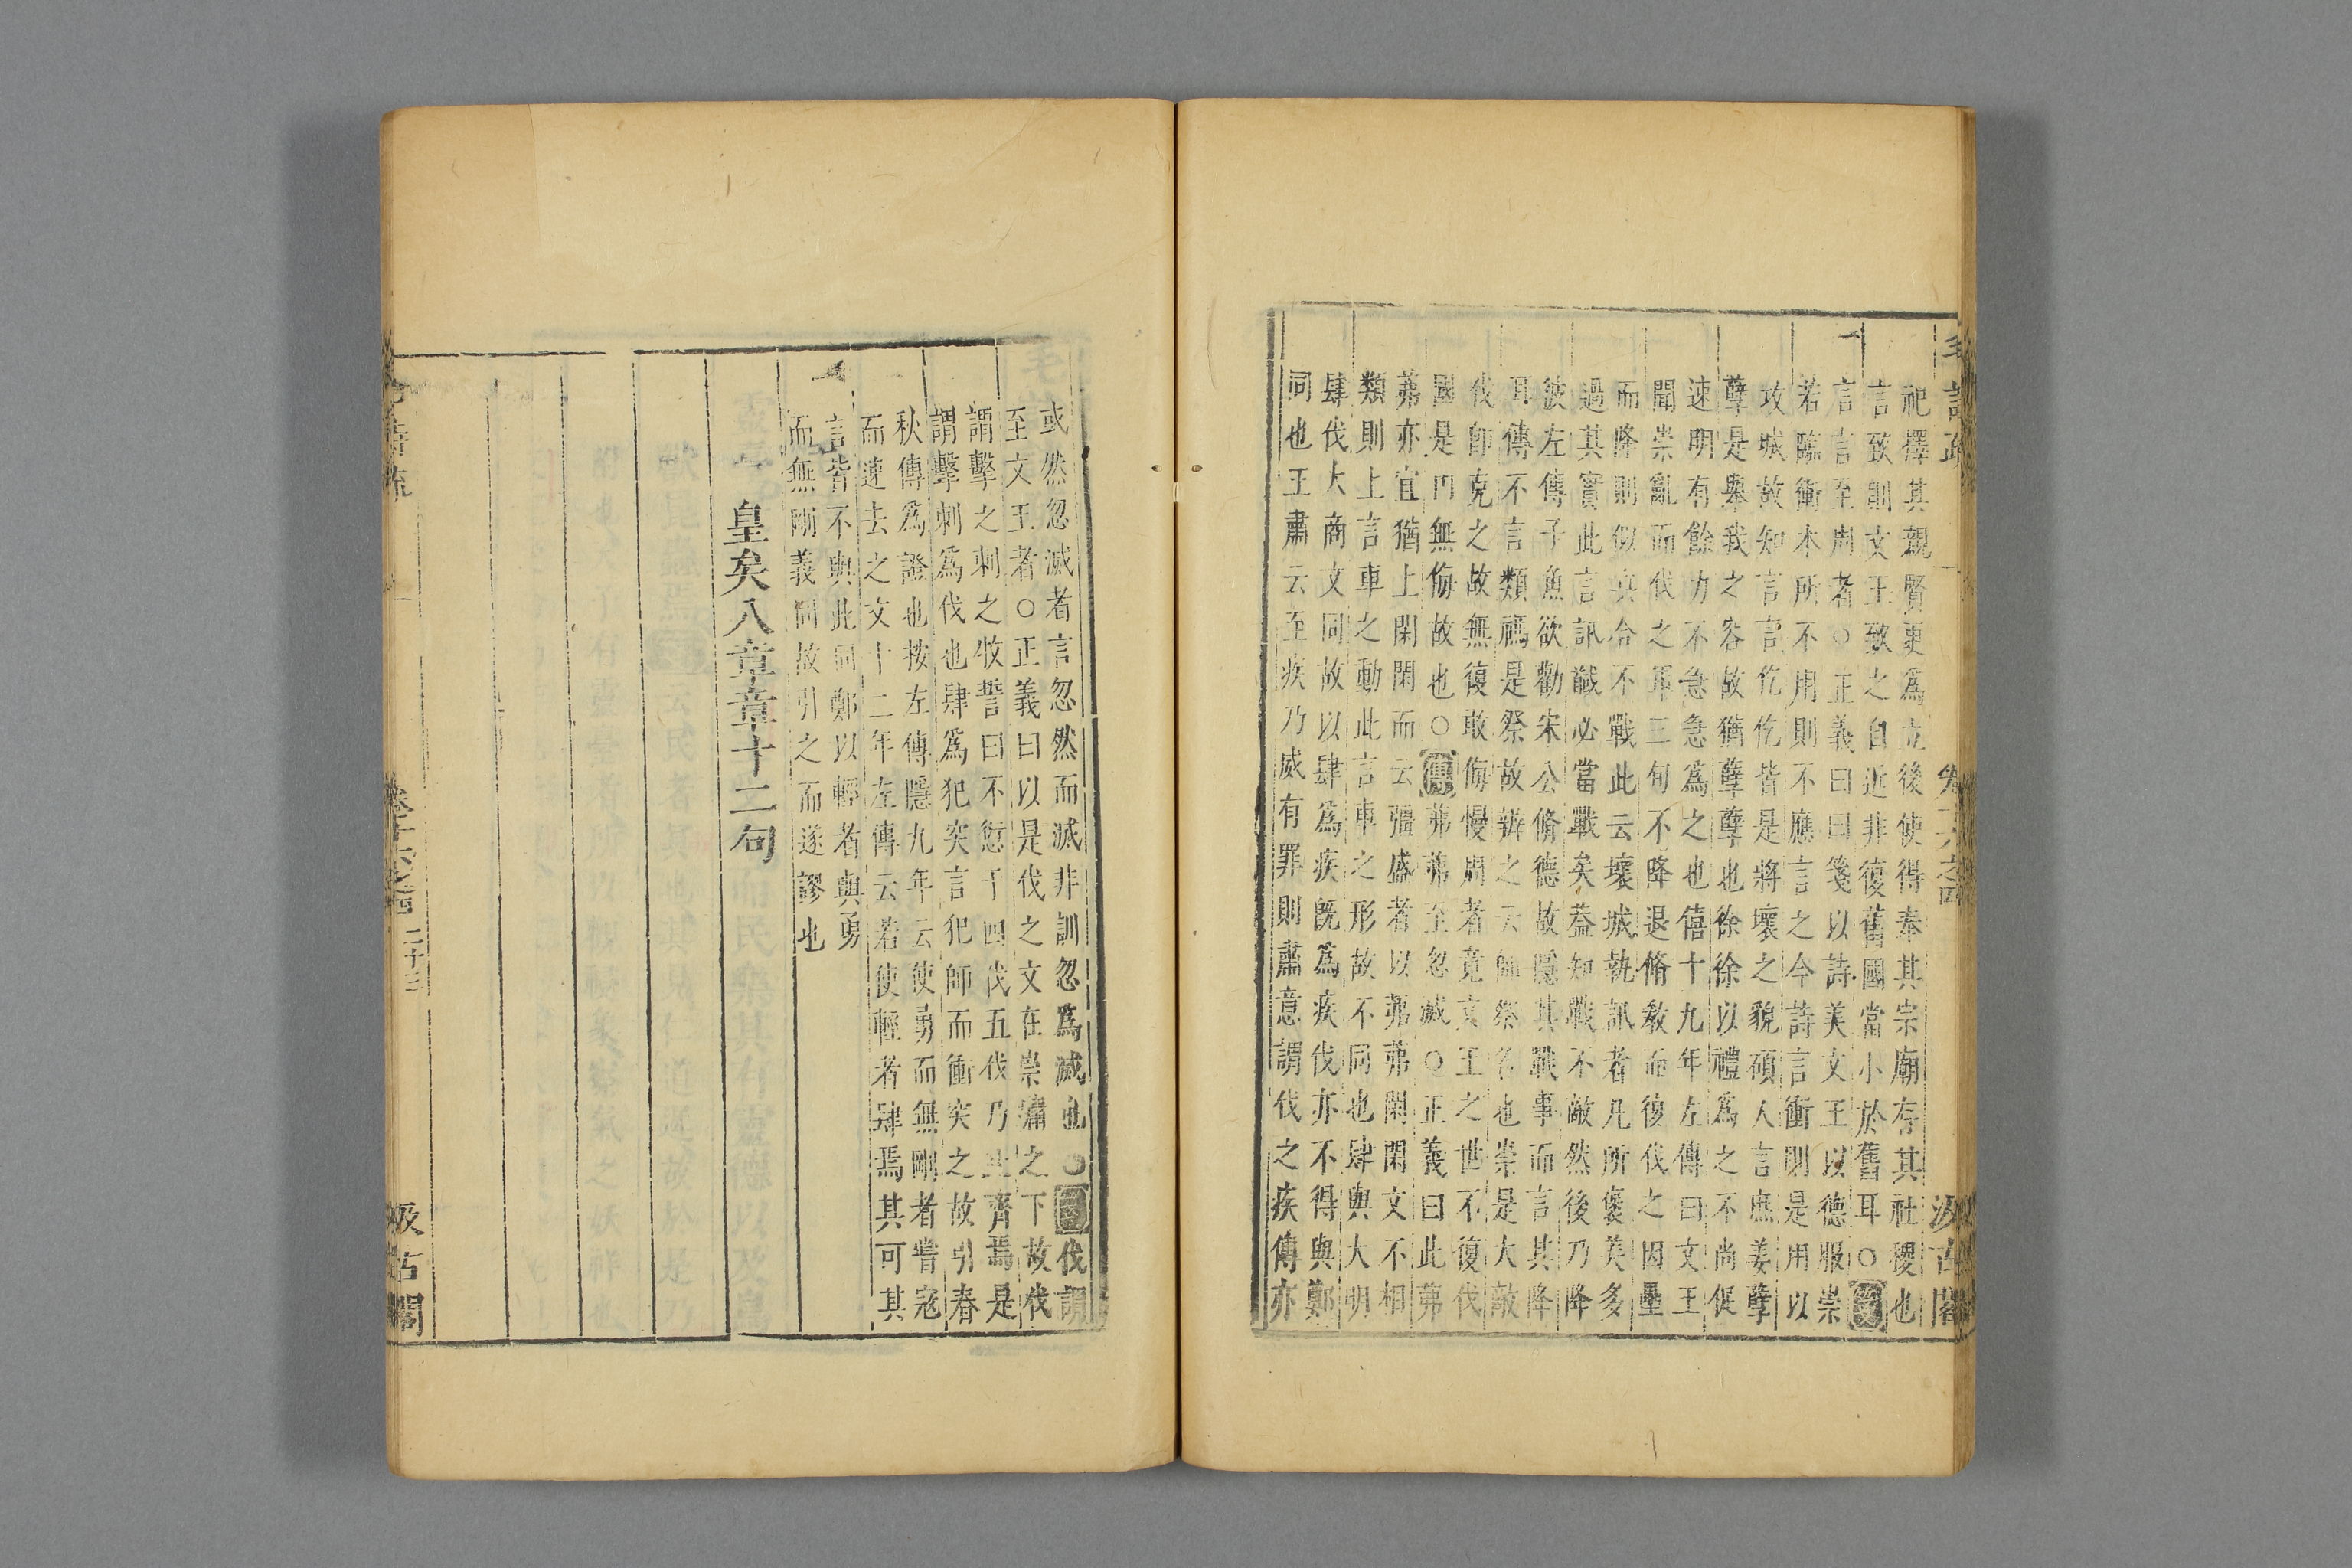 詩疏 卷十六之四 汲古閣
祀擇其親賢更爲立後使得奉其宗廟存其社稷也
言致訓文王致之自近非復舊國當小於舊耳○
言言至周者○正義曰曰箋以詩美文王以德服崇
若臨衝本所不用則不應言之今詩言衝則是用以
攻城故知言言仡仡皆是將壞之貌碩人言庶姜孽
孽是舉我之容故猶孽孽也徐徐以禮爲之不尚促
速明有餘力不急急爲之也僖十九年左傳曰文王
聞崇亂而伐之軍三旬不降退脩教而復伐之因壘
而降則似兵合不戰此云壞城執訊者凡所褒美多
過其實此言訊馘必當戰矣蓋知戰不敵然後乃降
彼左傳子魚欲勸宋公脩德故隱其戰事而言其降
耳傳不言類禡是祭故辨之云師祭名也崇是大敵
伐師克之故無復敢侮慢周者竟文王之世不復伐
國是四無侮故也○傳茀茀至忽滅○正義曰此茀
茀亦宜猶上閑閑而云彊盛者以茀茀閑閑文不相
類則上言車之動此言車之形故不同也肆與大明
肆伐大商文同故以肆爲疾旣爲疾伐亦不得與鄭
同也王肅云至疾乃威有罪則肅意謂伐之疾傳亦
或然忽滅者言忽然而滅非訓忽爲滅也○伐謂
至文王者○正義曰以是伐之文在崇墉之下故伐
謂擊之刺之牧誓曰不愆于四伐五伐乃止齊焉是
謂擊刺爲伐也肆爲犯突言犯師而衝突之故引春
秋傳爲證也按左傳隱九年云使勇而無剛者嘗寇
而速去之文十二年左傳云若使輕者肆焉其可其
言皆不與此同鄭以輕者與勇
而無剛義同故引之而遂謬也
皇矣八章章十二句
卷十六之四 二十三 汲古閣